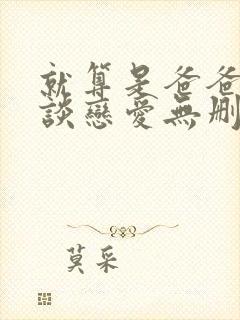 就算是爸爸
談戀愛無刪
莫采